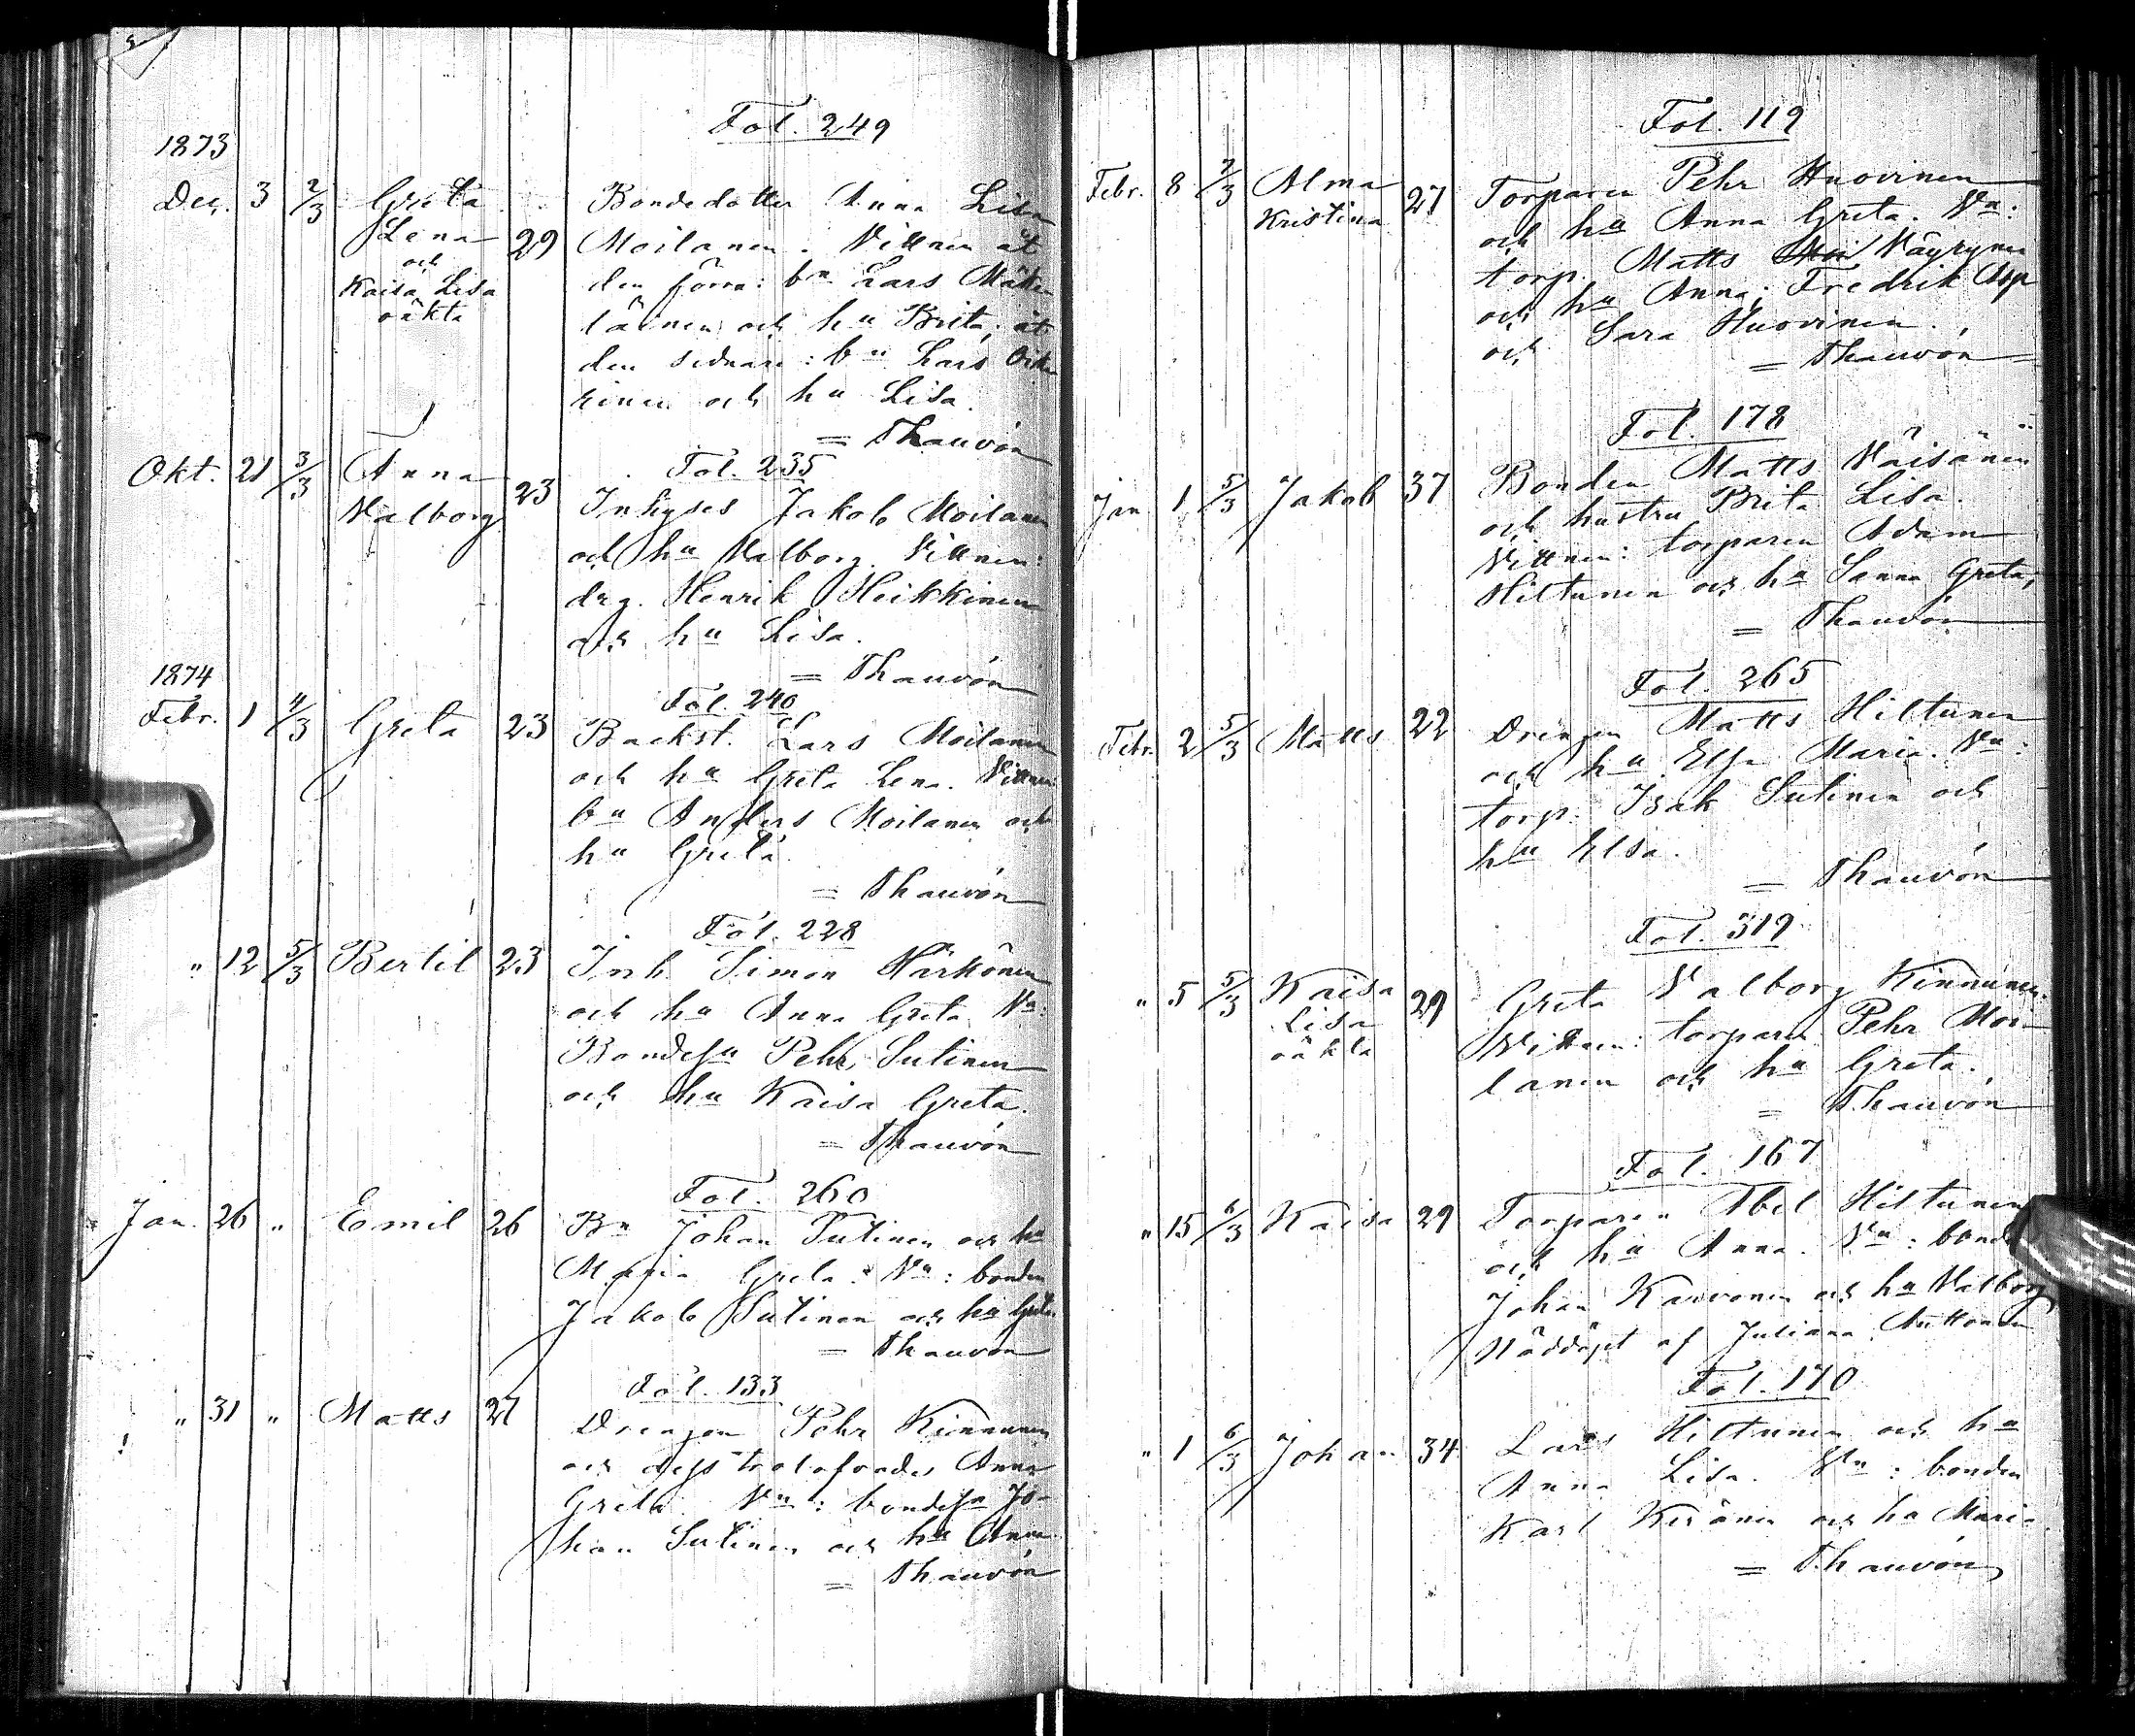 Fol. 249
1873
Dec. 3 2/3 Greta Bondedotter Anna Lisa
Lena 29 Moilanen. Vittnen åt
och den förra: bn Lars Mäke
Kaisa Lisa läinen och hu Brita; åt
oäkta den sednare: bn Lars
kinen och hu Lisa.
= Thauvón
Fol. 235
Okt. 21 3/3 Anna 23 Inhyses Jakob Moilanen
Valborg och hu Valborg. Vittnen:
drg. Henrik Heikkinen
och hu Lisa.
= Thauvón
1874
Fol. 240
Febr. 1 4/3 Greta 23 Backst. Lars Moilanen
och hu Greta Lena. Vittnen
bn Anders Moilanen och
hu Greta.
= Thauvón
Fol. 228
" 12 5/3 Bertil 23 Inh. Simon Härkönen
och hu Anna Greta Vn:
Pehr Sutinen
och hu Kaisa Greta.
= Thauvón
Fol. 260
Jan. 26 " Emil 26 Bn Johan Sutinen och hu
Maria Greta. Vn: bonden
Jakob Sutinen och hu Greta
= Thauvón
Fol. 133
" 31 " Matts 27 Drengen Pehr Kinnunen
och dess trolofvade Anna
Greta. Vn: Jo-
han Sutinen och hu Anna
= Thauvón
Fol. 119
Febr. 8 2/3 Alma 27 Torparen Pehr Huovinen
Kristina och hu Anna Greta. Vn:
torp. Matts Väyrynen
och hu Anna; Fredrik Asp
och Sara Huovinen.
= Thauvón
Fol. 178
Jan 1 5/3 Jakob 37 Bonden Matts Väisänen
och hustru Brita Lisa.
Vittnen: torparen Adam
Hiltunen och hu Sanna Greta,
= Thauvón
Fol. 265
Febr. 2 5/3 Matts 22 Drengen Matts Hiltunen
och hu Elsa Maria. Vn:
torp. Isak Sutinen och
hu Elsa.
= Thauvón
Fol. 319
" 5 5/3 Kaisa 29 Greta Valborg Kinnunen.
Lisa Vittnen: torparen Pehr Moi-
oäkta lanen och hu Greta.
= Thauvón
Fol. 167
" 15 6/3 Kaisa 29 Torparen Abel Hiltunen
och hu Anna. Vn: bonden
Johan Karvonen och hu Valborg
Nöddöpt af Juliana Anttonen
Fol. 170
" 1 6/3 Johan 34 Lars Hiltunen och hu
Anna Lisa. Vn: bonden
Karl Keränen och hu Maria
= Thauvón